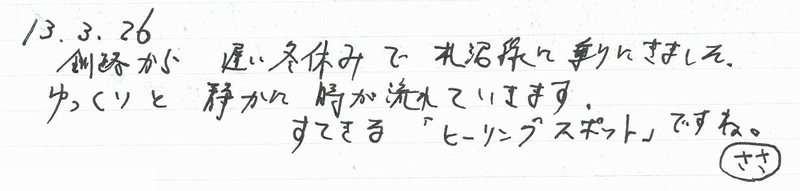 13.3.26
釧路から 遅い冬休みで 札沼線に乗りにきました。
ゆっくりと 静かに 時が流れていきます。
すてきな 「ヒーリングスポット」ですね。
ささ